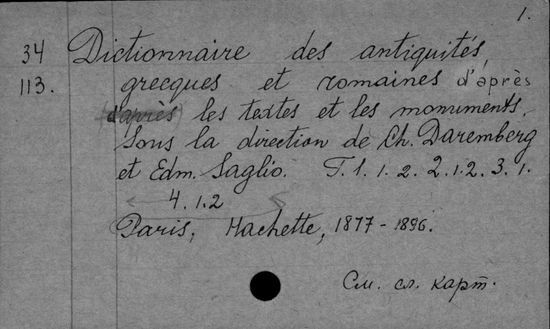 1.
34 Dictionnaire des antiquités
113. grecques et romaines d'après
d'après les textes et les monuments.
Sous la direction de Ch. Daremberg
et Edm. Saglio. T. 1. 1. 2. 2.1.2. 3. 1.
4. 1.2
Paris, Hachette, 1877-1896.
См. сл. карт.